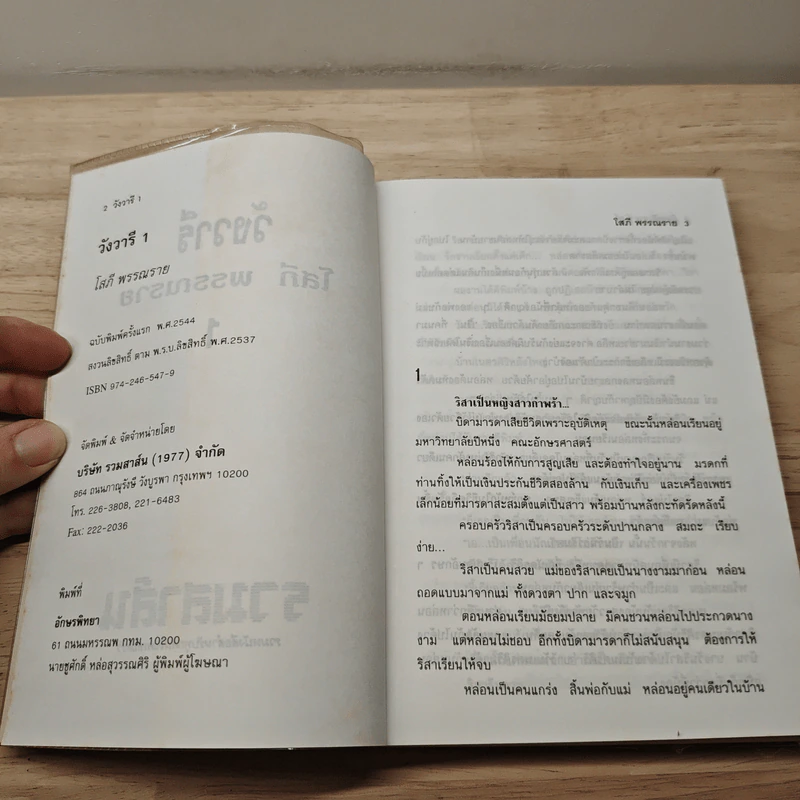 2 วังวารี 1
วังวารี 1
โสภี พรรณราย
ฉบับพิมพ์ครั้งแรก พ.ศ.2544
สงวนลิขสิทธิ์ ตาม พ.ร.บ.ลิขสิทธิ์ พ.ศ.2537
ISBN 974-246-547-9
จัดพิมพ์ & จัดจำหน่ายโดย
บริษัท รวมสาส์น (1977) จำกัด
864 ถนนภาณุรังษี วังบูรพา กรุงเทพฯ 10200
โทร. 226-3808, 221-6483
Fax: 222-2036
พิมพ์ที่
อักษรพิทยา
61 ถนนมหรรณพ กทม. 10200
นายชูศักดิ์ หล่อสุวรรณศิริ ผู้พิมพ์ผู้โฆษณา
โสภี พรรณราย 3
1
ริสาเป็นหญิงสาวกำพร้า...
บิดามารดาเสียชีวิตเพราะอุบัติเหตุ ขณะนั้นหล่อนเรียนอยู่
มหาวิทยาลัยปีหนึ่ง คณะอักษรศาสตร์
หล่อนร้องไห้กับการสูญเสีย และต้องทำใจอยู่นาน มรดกที่
ท่านทิ้งให้เป็นเงินประกันชีวิตสองล้าน กับเงินเก็บ และเครื่องเพชร
เล็กน้อยที่มารดาสะสมตั้งแต่เป็นสาว พร้อมบ้านหลังกะทัดรัดหลังนี้
ครอบครัวริสาเป็นครอบครัวระดับปานกลาง สมถะ เรียบ
ง่าย...
ริสาเป็นคนสวย แม่ของริสาเคยเป็นนางงามมาก่อน หล่อน
ถอดแบบมาจากแม่ ทั้งดวงตา ปาก และจมูก
ตอนหล่อนเรียนมัธยมปลาย มีคนชวนหล่อนไปประกวดนาง
งาม แต่หล่อนไม่ชอบ อีกทั้งบิดามารดาก็ไม่สนับสนุน ต้องการให้
ริสาเรียนให้จบ
หล่อนเป็นคนแกร่ง สิ้นพ่อกับแม่ หล่อนอยู่คนเดียวในบ้าน